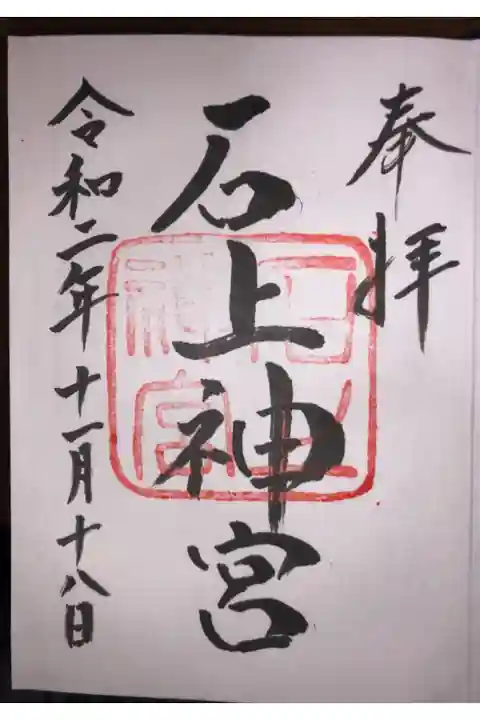 奉拝
石上神宮
石上神宮
令和二年十一月十八日